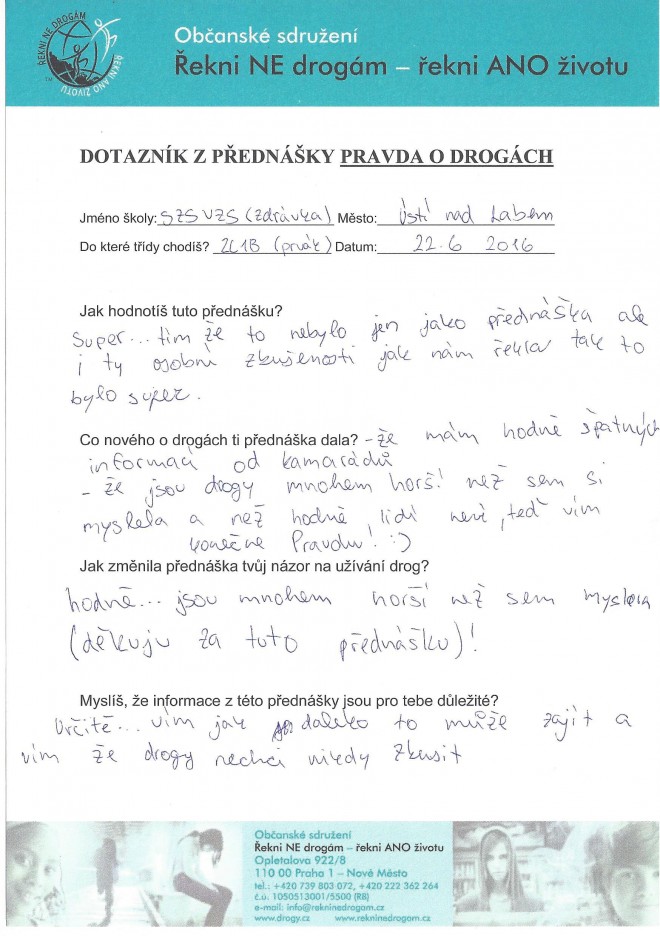 ŘEKNI NE DROGÁM
ŘEKNI ANO ŽIVOTU
Občanské sdružení
Řekni NE drogám – řekni ANO životu
DOTAZNÍK Z PŘEDNÁŠKY PRAVDA O DROGÁCH
Jméno školy: SZŠ VZŠ (Zdrávka) Město: Ústí nad Labem
Do které třídy chodíš? ZC1B (prvák) Datum: 22.6 2016
Jak hodnotíš tuto přednášku?
Super... tím že to nebylo jen jako přednáška ale
i ty osobní zkušenosti jak nám řekla tak to
bylo super.
Co nového o drogách ti přednáška dala? - že mám hodně špatných
informací od kamarádů
- že jsou drogy mnohem horší než sem si
myslela a než hodně lidí neví, teď vím
konečne Pravdu! :)
Jak změnila přednáška tvůj názor na užívání drog?
hodně... jsou mnohem horší než sem myslela
(děkuju za tuto přednášku)!
Myslíš, že informace z této přednášky jsou pro tebe důležité?
Určitě... vím jak daleko to může zajít a
vím že drogy nechci nikdy zkusit
Občanské sdružení
Řekni NE drogám – řekni ANO životu
Opletalova 922/8
110 00 Praha 1 – Nové Město
tel.: +420 739 803 072, +420 222 362 264
č.ú: 1050513001/5500 (RB)
e-mail: info@rekninedrogam.cz
www.drogy.cz www.rekninedrogam.cz